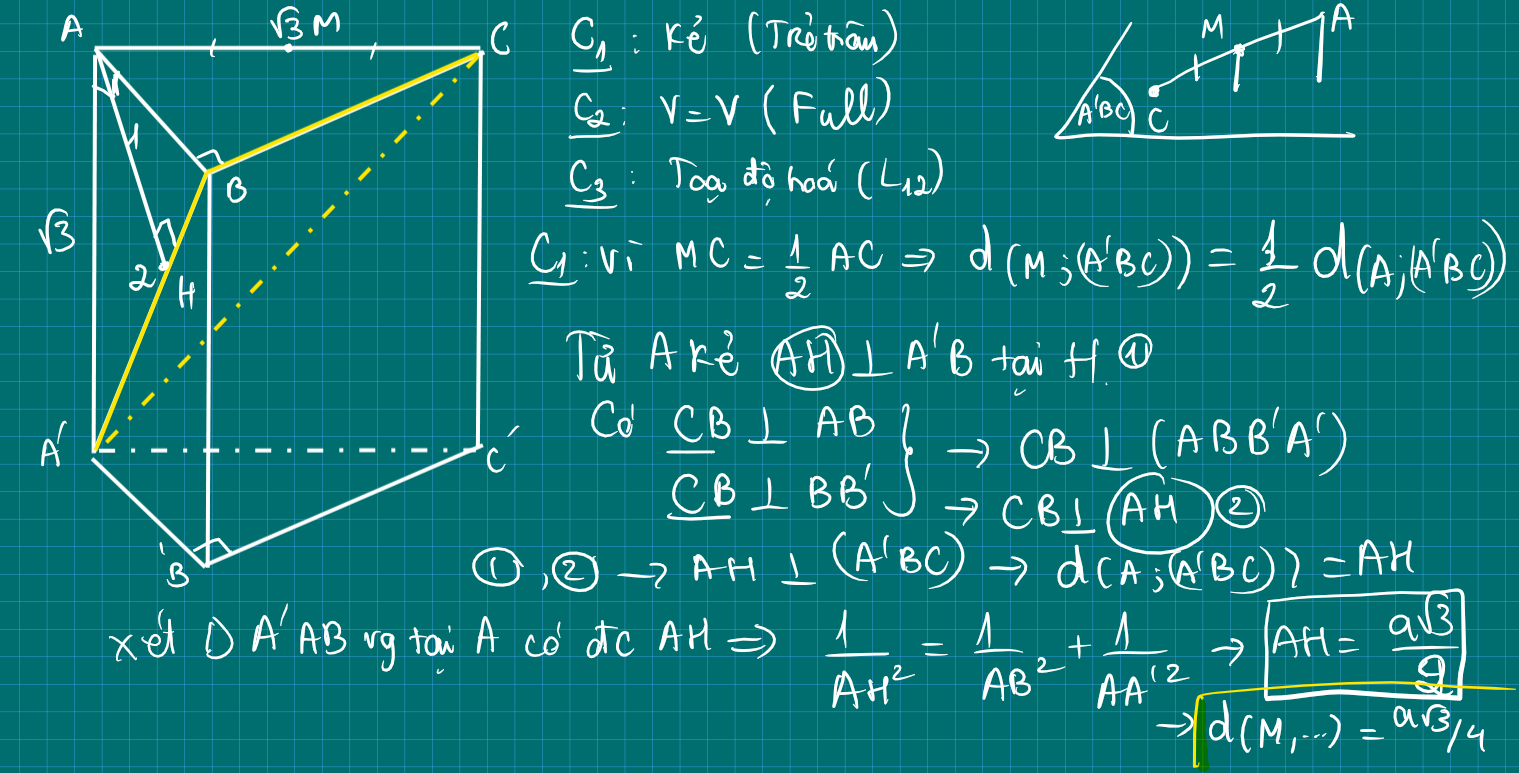 A √3 M C
1
B
√3
2 H
A' C'
B'
C₁ : Kẻ (Trẻ trâu)
C₂ : V = V (Full)
C₃ : Toạ độ hoá (L₁₂)
M A
A'BC C
C₁ : Vì MC = 1/2 AC ⇒ d(M;(A'BC)) = 1/2 d(A;(A'BC))
Từ A kẻ AH ⊥ A'B tại H ①
Có CB ⊥ AB
CB ⊥ BB' } → CB ⊥ (ABB'A')
→ CB ⊥ AH ②
①, ② → AH ⊥ (A'BC) → d(A;(A'BC)) = AH
xét Δ A'AB vg tại A có đc AH ⇒ 1/AH² = 1/AB² + 1/AA'² → AH = a√3/2
→ d(M,...) = a√3/4